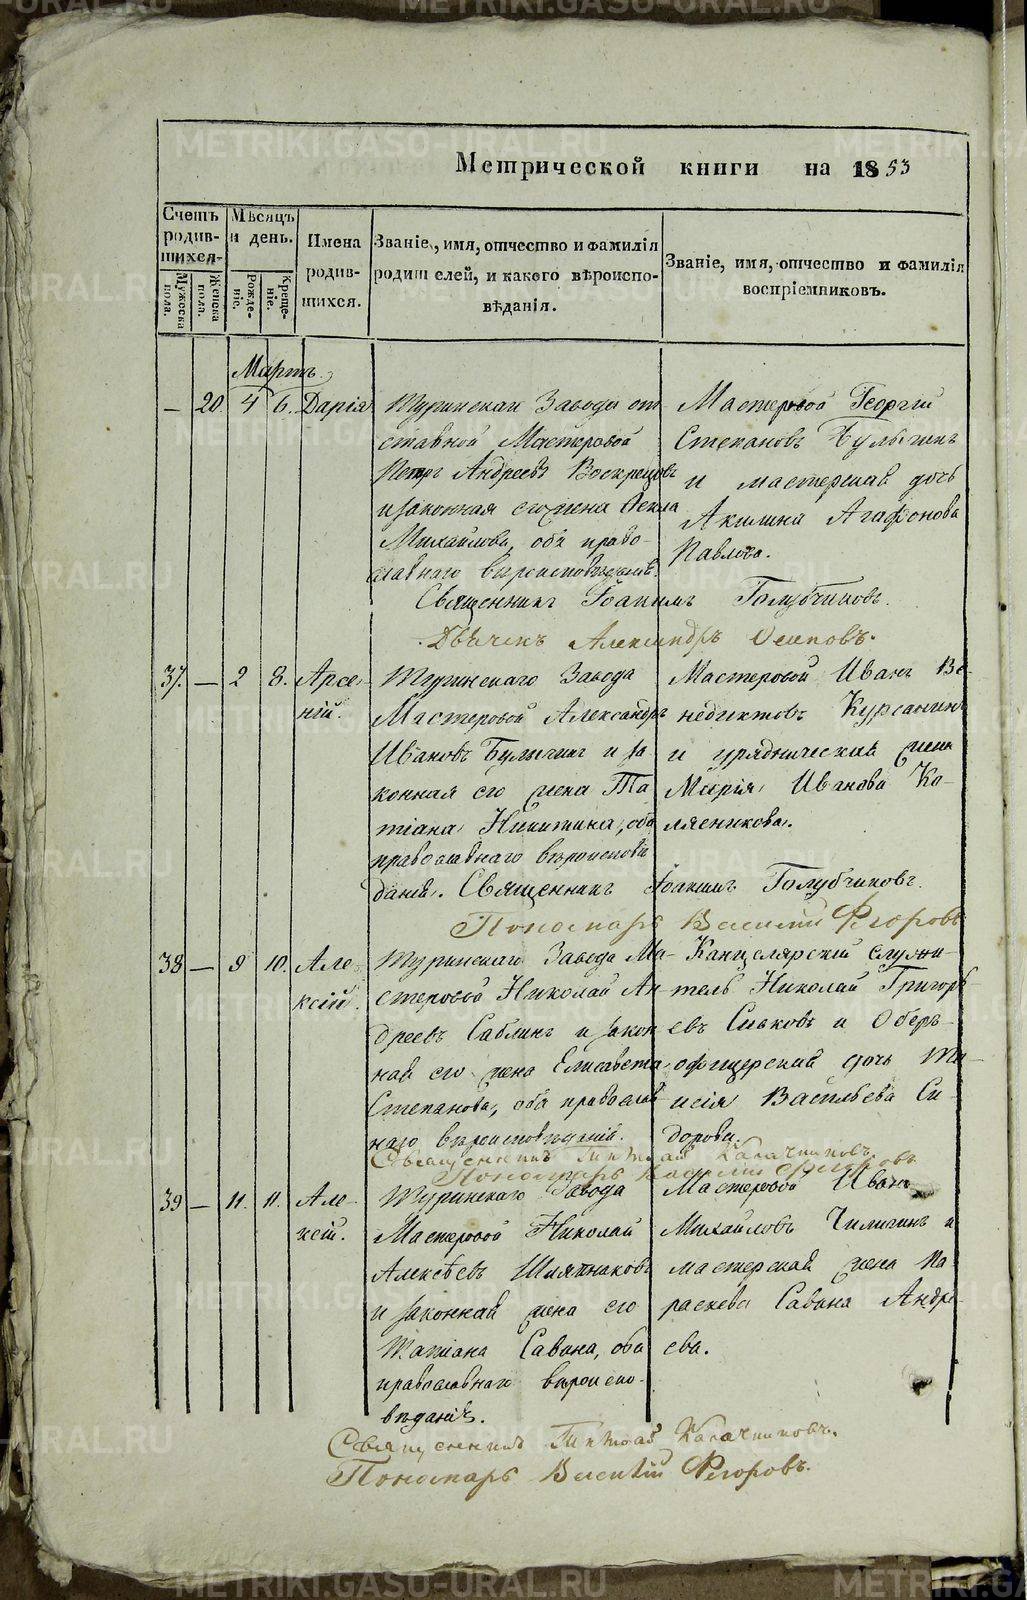 Метрической книги на 1853
Счетъ родив-шихся.
Мужеска пола.
Женска пола.
Мѣсяцъ и день.
Рожде-ніе.
Креще-ніе.
Имена родив-шихся.
Званіе, имя, отчество и фамилія родителей, и какого вѣроиспо-вѣданія.
Званіе, имя, отчество и фамилія воспріемниковъ.
Мартъ
— 20 4 6. Дарія
Туринскаго Завода от
ставной Мастеровой
Петръ Андреевъ
и законная его жена
Михайлова, оба право-
славнаго вѣроисповѣданія.
Мастеровой Георгій
Степановъ Булыгинъ
и мастерская дочь
Акилина Агафонова
Павлова.
Священникъ Іоакимъ Голубчиковъ.
Дьячекъ Александръ Осиповъ.
37. — 2 8. Арсе-
ній.
Туринскаго Завода
Мастеровой Александръ
Ивановъ Булыгинъ и за
конная его жена Та
тіана Никитина, оба
православнаго вѣроисповѣ
данія.
Мастеровой Иванъ Ве-
недиктовъ
и урядническая жена
Марія Иванова Ко-
лясникова.
Священникъ Іоакимъ Голубчиковъ.
Пономарь Василій Ѳедоровъ
38 — 9 10. Але-
ксій.
Туринскаго Завода Ма-
стеровой Николай Ан
дреевъ Саблинъ и закон
ная его жена Елисавета
Степанова, оба православ
наго вѣроисповѣданія.
Канцелярскій служи-
тель Николай Григорь
евъ Сысковъ и Оберъ-
офицерская дочь Таи-
исія Васильева Си-
дорова.
Священникъ Калачниковъ
Пономарь Василій Ѳедоровъ
39 — 11. 11. Але-
ксій.
Туринскаго Завода
Мастеровой Николай
Алексѣевъ Шляпниковъ
и законная жена его
Татіана Савина, оба
православнаго вѣроиспо-
вѣданія.
Мастеровой Иванъ
Михайловъ Чиликинъ и
мастерская жена Па-
раскева Савина Андре-
ева.
Священникъ Калачниковъ.
Пономарь Василій Ѳедоровъ.
METRIKI.GASO-URAL.RU